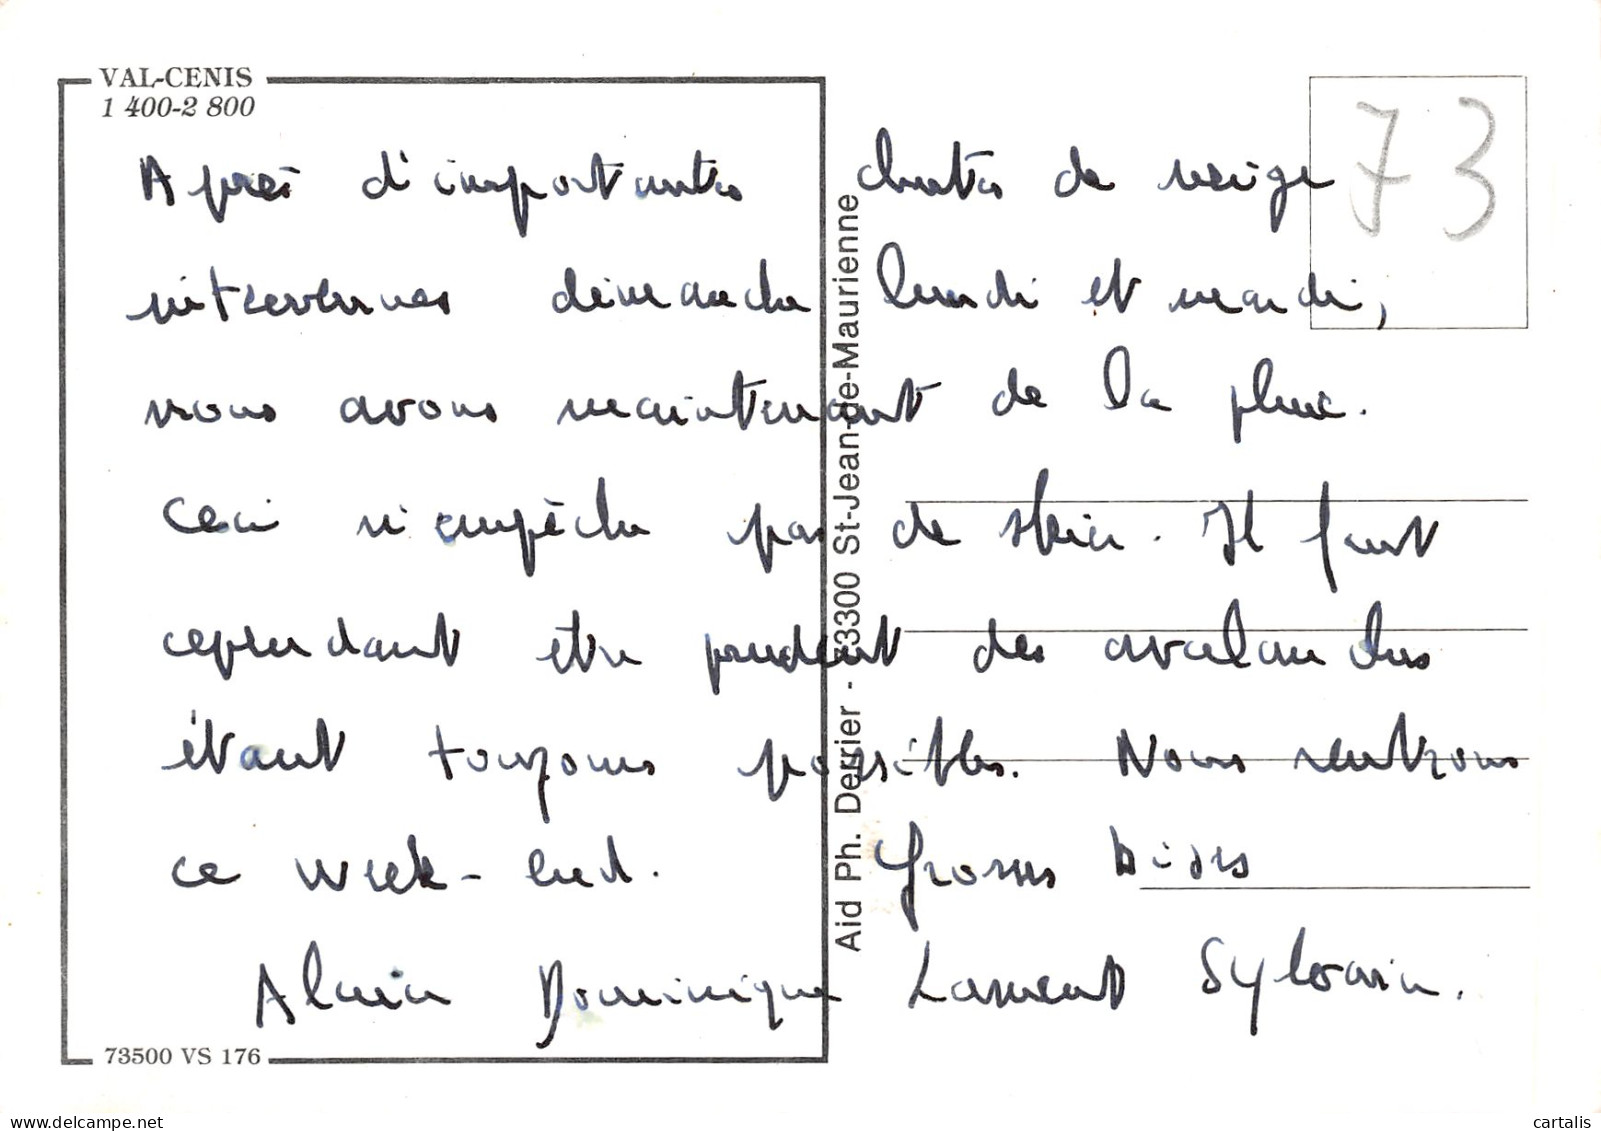 VAL-CENIS
1 400-2 800
73
Après d'importantes chutes de neige
intervenues dimanche lundi et mardi,
nous avons maintenant de la pluie.
Ceci n'empêche pas de skier. Il faut
cependant être prudent des avalanches
étant toujours possibles. Nous rentrons
ce week-end. Grosses bises
Alain Dominique Laurent Sylvain.
Aid Ph. Derrier - 73300 St-Jean-de-Maurienne
73500 VS 176
cartalis